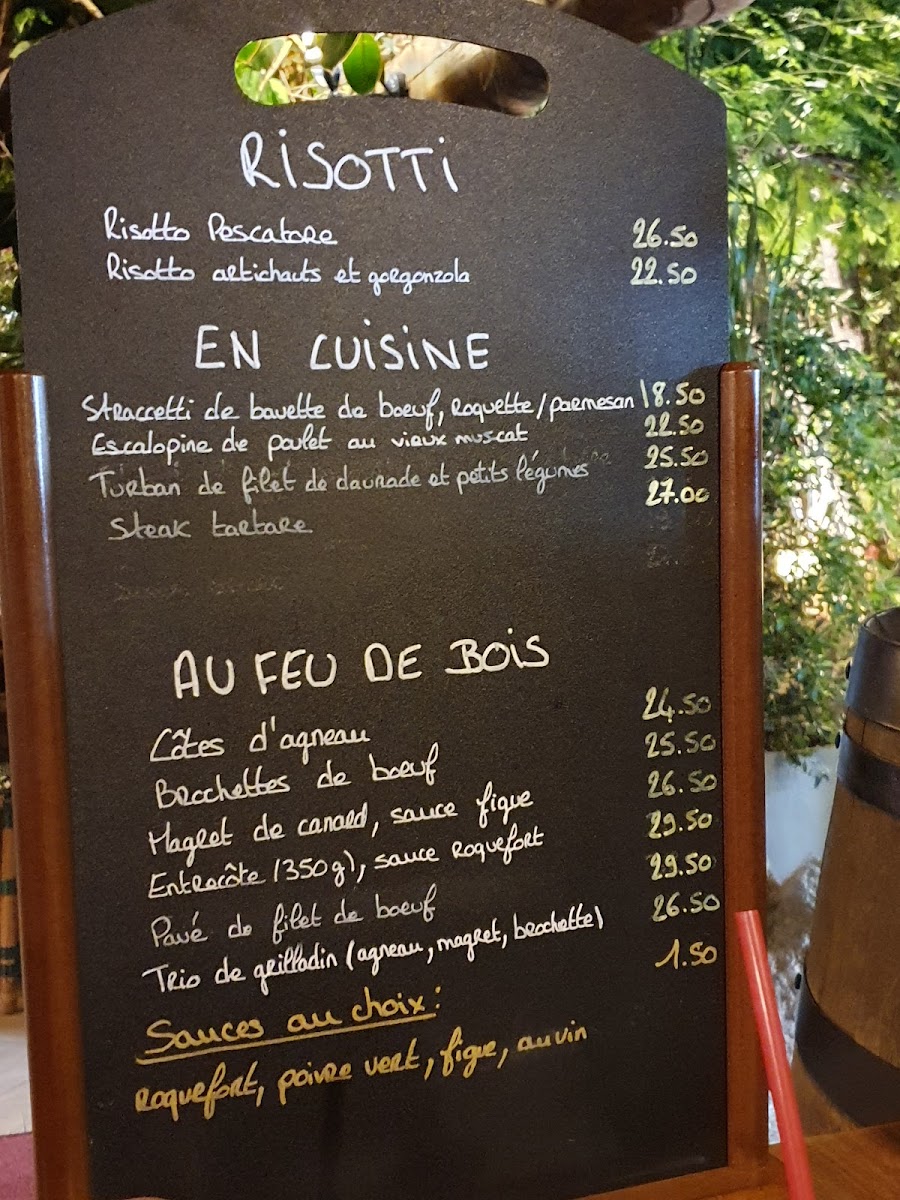 RISOTTI
Risotto Pescatore 26.50
Risotto artichauts et gorgonzola 22.50
EN CUISINE
Straccetti de bavette de boeuf, roquette/parmesan 18.50
Escalopine de poulet au vieux muscat 22.50
Turban de filet de daurade et petits légumes 25.50
Steak tartare 27.00
AU FEU DE BOIS
Côtes d'agneau 24.50
Brochettes de boeuf 25.50
Magret de canard, sauce figue 26.50
Entrecôte (350g), sauce roquefort 29.50
Pavé de filet de boeuf 29.50
Trio de grilladin (agneau, magret, brochette) 26.50
Sauces au choix: 1.50
roquefort, poivre vert, figue, au vin